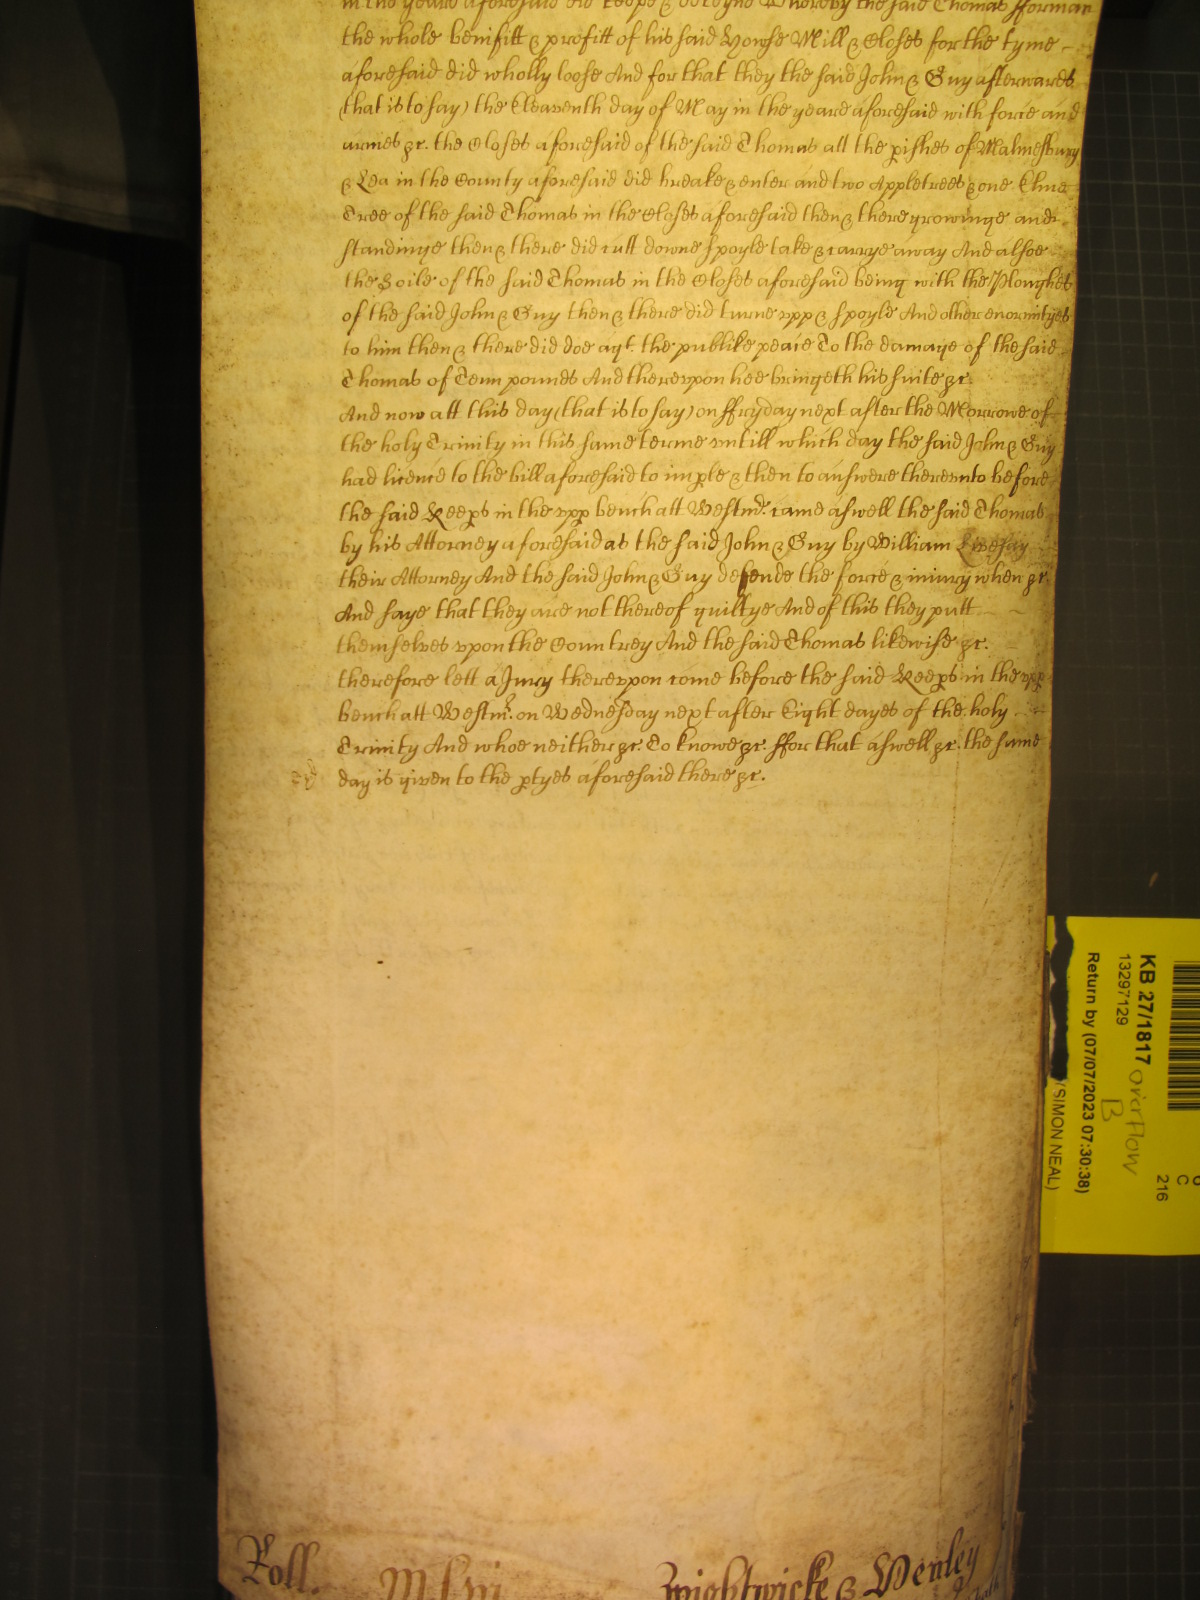 in the yeare aforesaid did keepe & deteyne Whereby the said Thomas fforman
the whole benifitt & profitt of his said Howse Mill & Closes for the tyme
aforesaid did wholly loose And for that they the said John & Guy afterwards
(that is to say) the Eleaventh day of May in the yeare aforesaid with force and
armes &c. the Closes aforesaid of the said Thomas att the pishes of Malmesbury
& Lea in the County aforesaid did breake & enter and two Appletrees & one Elme
Tree of the said Thomas in the Closes aforesaid then & there growinge and
standinge then & there did cutt downe spoyle take & carrye away And alsoe
the Soile of the said Thomas in the Closes aforesaid being with the Ploughes
of the said John & Guy then & there did turne vpp & spoyle And other enormityes
to him then & there did doe agt. the publike peace To the damage of the said
Thomas of Tenn pounds And therevpon hee bringeth his suite &c.
And now att this day (that is to say) on ffryday next after the Morrowe of
the holy Trinity in this same terme vntill which day the said John & Guy
had licence to the bill aforesaid to imple & then to answere therevnto before
the said Keeps in the vpp bench att Westmr. came aswell the said Thomas
by his Attorney aforesaid as the said John & Guy by William Livesay
their Attorney And the said John & Guy defende the force & iniury when &c.
And saye that they are not thereof guiltye And of this they putt
themselves vpon the Countrey And the said Thomas likewise &c.
therefore lett a Jury therevpon come before the said Keeps in the vpp
bench att Westmr. on Wednesday next after Eight dayes of the holy
Trinity And whoe neither &c. To knowe &c. ffor that aswell &c. the same
day is given to the ptyes aforesaid there &c.
Roll.
Wightwicke & Henley
KB 27/1817 overflow
B
13297129
Return by (07/07/2023 07:30:38)
/SIMON NEAL)
216
C